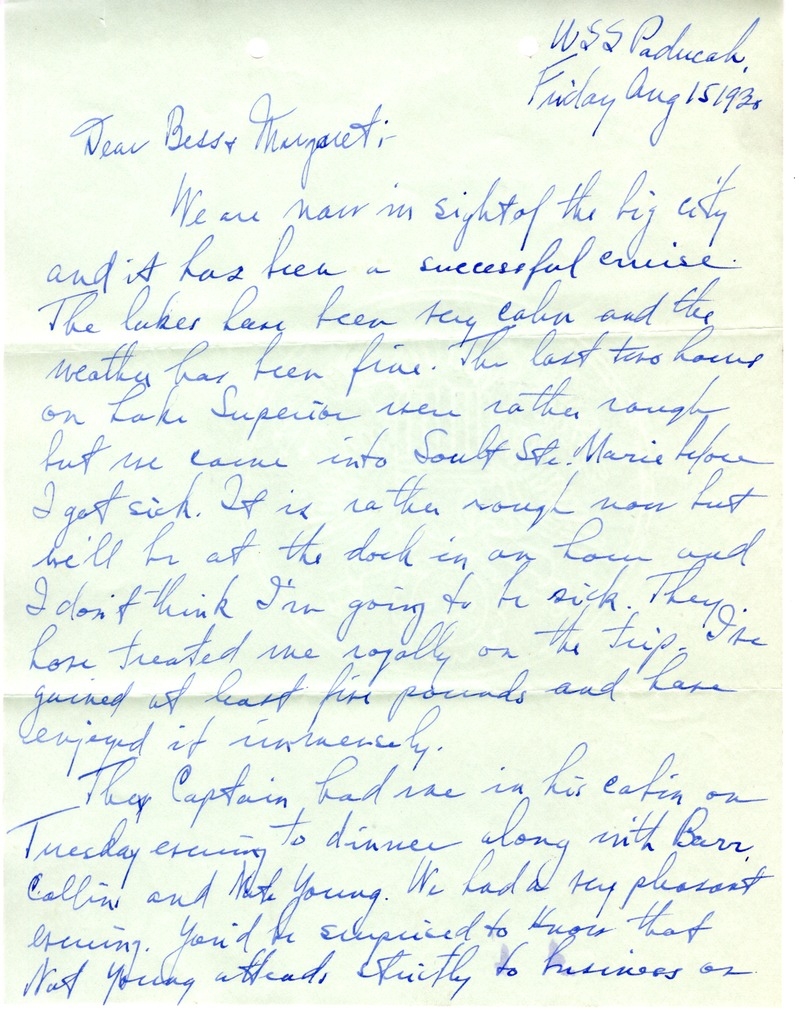 USS Paducah,
Friday Aug 15 1930
Dear Bess & Margaret:-
We are now in sight of the big city
and it has been a successful cruise.
The lakes have been very calm and the
weather has been fine. The last two hours
on Lake Superior were rather rough
but we came into Soult Ste. Marie before
I got sick. It is rather rough now but
we'll be at the dock in an hour and
I don't think I'm going to be sick. They
have treated me royally on the trip. I've
gained at least five pounds and have
enjoyed it immensely.
The Captain had me in his cabin on
Tuesday evening to dinner along with Barr,
Collins and Nat Young. We had a very pleasant
evening. You'd be surprised to know that
Nat Young attends strictly to business on